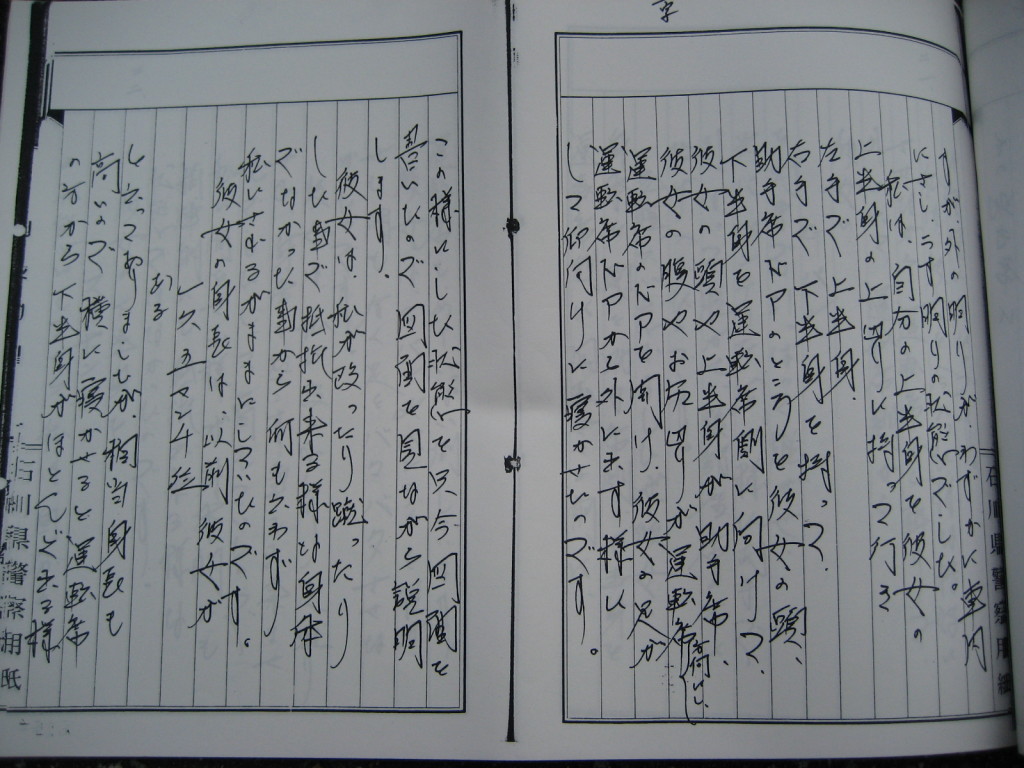 すが外の明りが、わずかに車内
にさし、うす明りの状態でした。
私は、自分の上半身を彼女の
上半身の上辺りに持って行き
左手で上半身
右手で下半身を持って、
助手席ドアのところを彼女の頭、
下半身を運転席側に向けて、
彼女の頭や上半身が助手席、
彼女の腹やお尻辺りが運転席
運転席のドアを開け、彼女の足が
運転席ドアから外に出す様に
して仰向けに寝かせたのです。
この様にした状態を只今図面を
書いたので図面を見ながら説明
します。
彼女は、私が殴ったり蹴ったり
した事で抵抗出来る様な身体
でなかった事から何も云わず
私にされるがままにしていたのです。
彼女の身長は、以前彼女が
一六五センチ位
ある
と云っておりましたが、相当身長も
高いので横に寝かせると運転席
の方から下半身がほとんど出る様
石川県警察用紙
石川県警察用紙